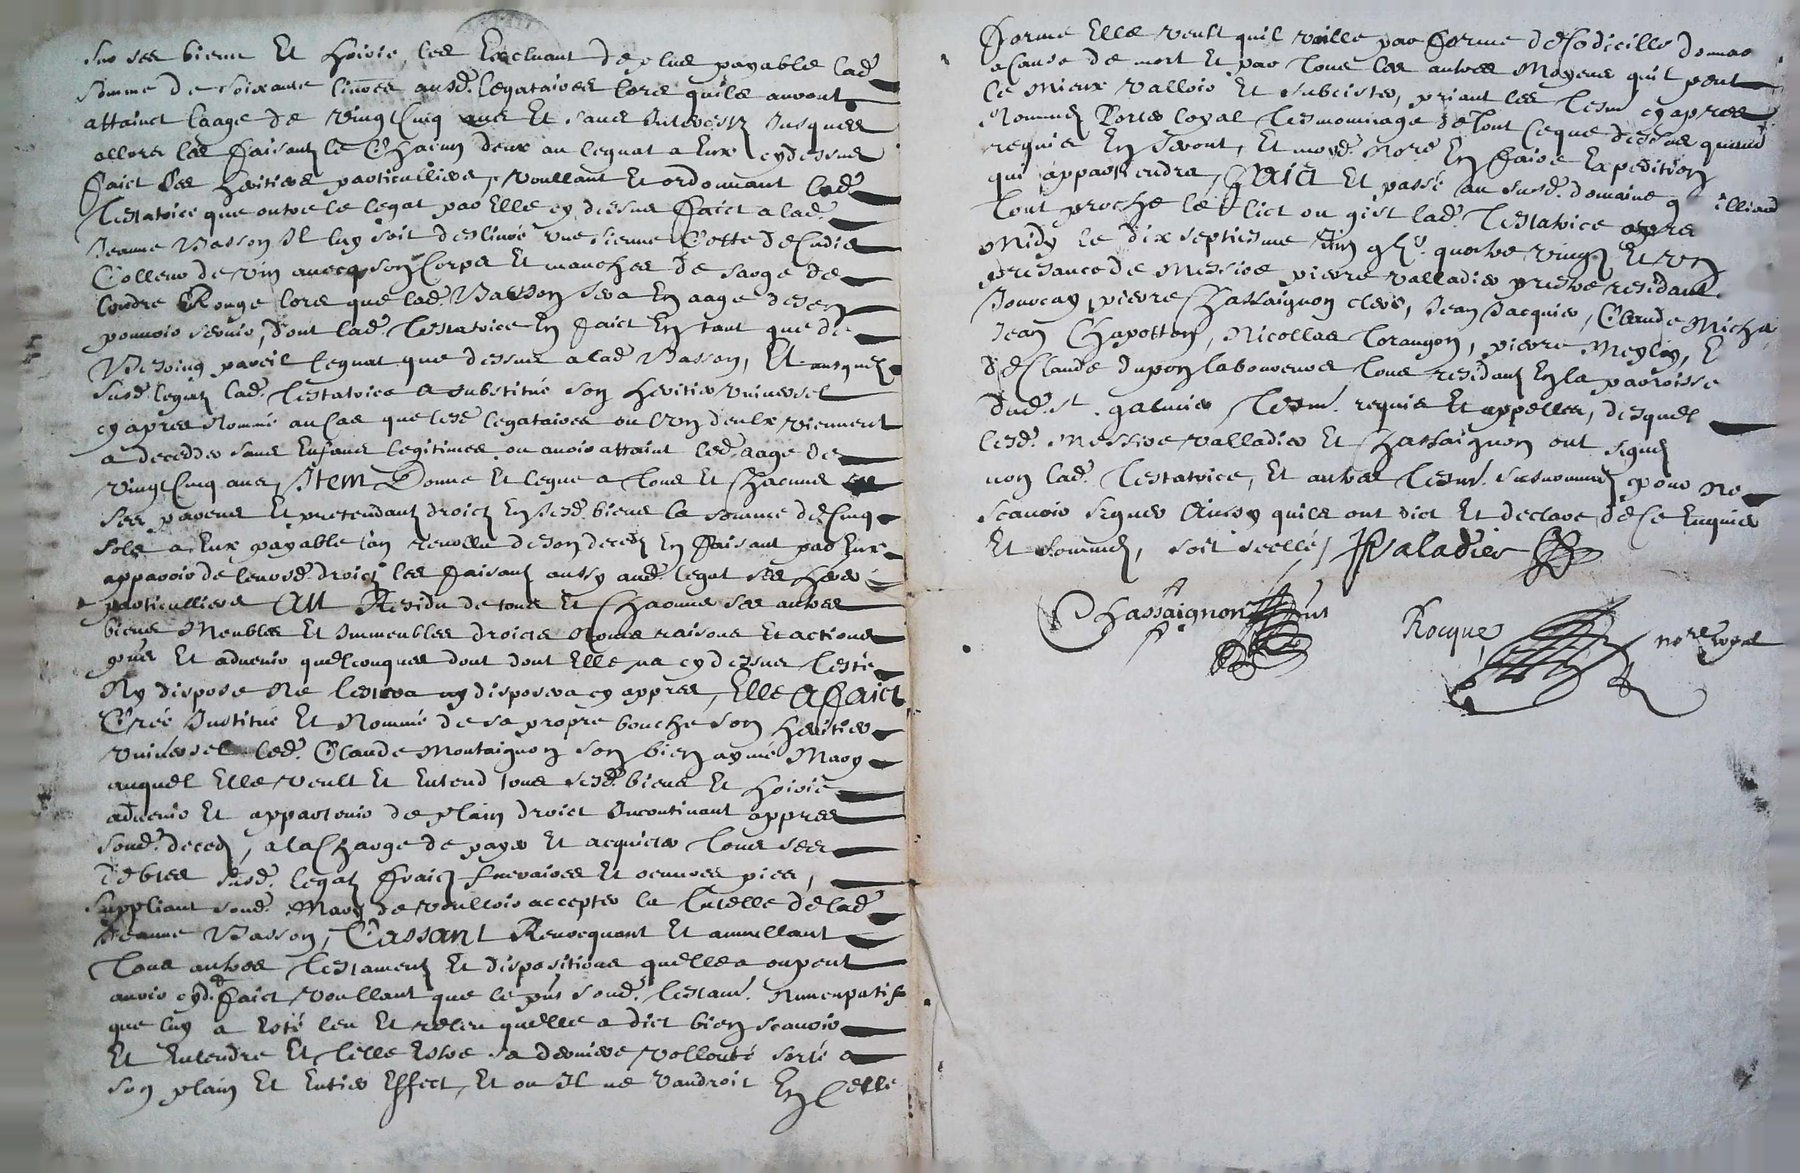 Sur ses biens Et hoirie, les Excluant de plus payable lad.
Somme de soixante livres ausd. legataires lors quils auront
attainct laage de vingt Cinq ans Et sans Interestz Jusques
allors les faisant le Chacun deux au leguat a Eux cydessus
faict Ses heritiers particulliers, Voullant Et ordonnant lad.
Testatrice que outre le legat par Elle cy dessus faict a lad.
Jeanne Basson Il luy soit deslivré une sienne Cotte de Cadis
Colleur de vin avecq son Corps Et manches de sarge de
londre Rouge lors que lad. Basson sera En aage de sen
pouvoir servir, dont lad. Testatrice En faict En tant que de
Besoing pareil leguat que dessus a lad. Basson, Et ausquelz
susd. legatz lad. Testatrice a substitué son heritier universel
cy apres Nommé au Cas que lesd. legataires ou lun deulx viennent
a decedder sans Enfans legitimes ou avoir attaint led. aage de
vingt Cinq ans, Item Donne Et legue a Tous Et Chacuns
ses parens Et pretendantz droict En sesd. biens la somme de Cinq
solz a Eux payable lan revollu de son decedz En faisant par Eux
apparoir de leursd. droictz les faisant aussy aud. legat ses hers
particulliers Au Residu de tous Et Chacuns ses autres
biens Meubles Et Immeubles droicts Noms raisons Et actions
pnts Et advenir quelconques dont dont Elle na cy dessus Testé
Ny dispose Ne Testera ny disposera cy appres, Elle a faict
Créé Institué Et Nommé de sa propre bouche son heritier
universel led. Claude Montaignon son bien aymé Mary
auquel Elle veult Et Entend tous sesd. biens Et hoirie
advenir Et appartenir de plain droict Incontinant appres
sond. decedz, a la Charge de payer Et acquicter Tous ses
Debtes susd. legatz fraictz funeraires Et oeuvres pies,
suppliant sond. Mary de voulloir accepter la Tutelle de lad.
Jeanne Basson, Cassant Revocquant Et annullant
Tous autres Testamentz Et dispositions quelle a ou peut
avoir cyd. faict Voullant que le pnt sond. Testam. Nuncupatif
que luy a Esté leu Et releu quelle a dict bien scavoir
Et Entendre Et Telle Estre sa derniere vollonté sorte a
son plain Et Entier Effect, Et ou Il ne vaudroit En Celle
forme Elle veult quil vaille par forme de Codicille donnaon
a Cause de mort Et par Tous les autres Moyens quil peut
le Mieux valloir Et subcister, priant les Tesm. cyapres
Nommés Porter loyal Tesmoinage de Tout Ce que dessus quand
requis En seront, Et moyd. Nore En faire Expedition
qui appartiendra, Faict Et passé au susd. domaine g illiand
Tout proche le lict ou gist lad. Testatrice apres
Midy le dix septiesme Juin quatre vingtz Et un
presance de Messire pierre valladier prestre residant
pierre Chassaignon clerc, Jean Jacquier, Claude Micha
Jean Chapotton, Nicollas Torangon, pierre Meylay, E
de Claude dupon laboureurs Tous residantz En la parroisse
dud. St. galmier, Tesm. requis Et appelles, desquelz
lesd. Messire valladier Et Chassaignon ont signé
non lad. Testatrice, Et autres Tesm. susnommés pour Ne
scavoir signer Ainsy quils ont dict Et declare de Ce Enquis
Et sommés, soit scellé, P Valadier
Chassaignon pnt Rocque nore royal